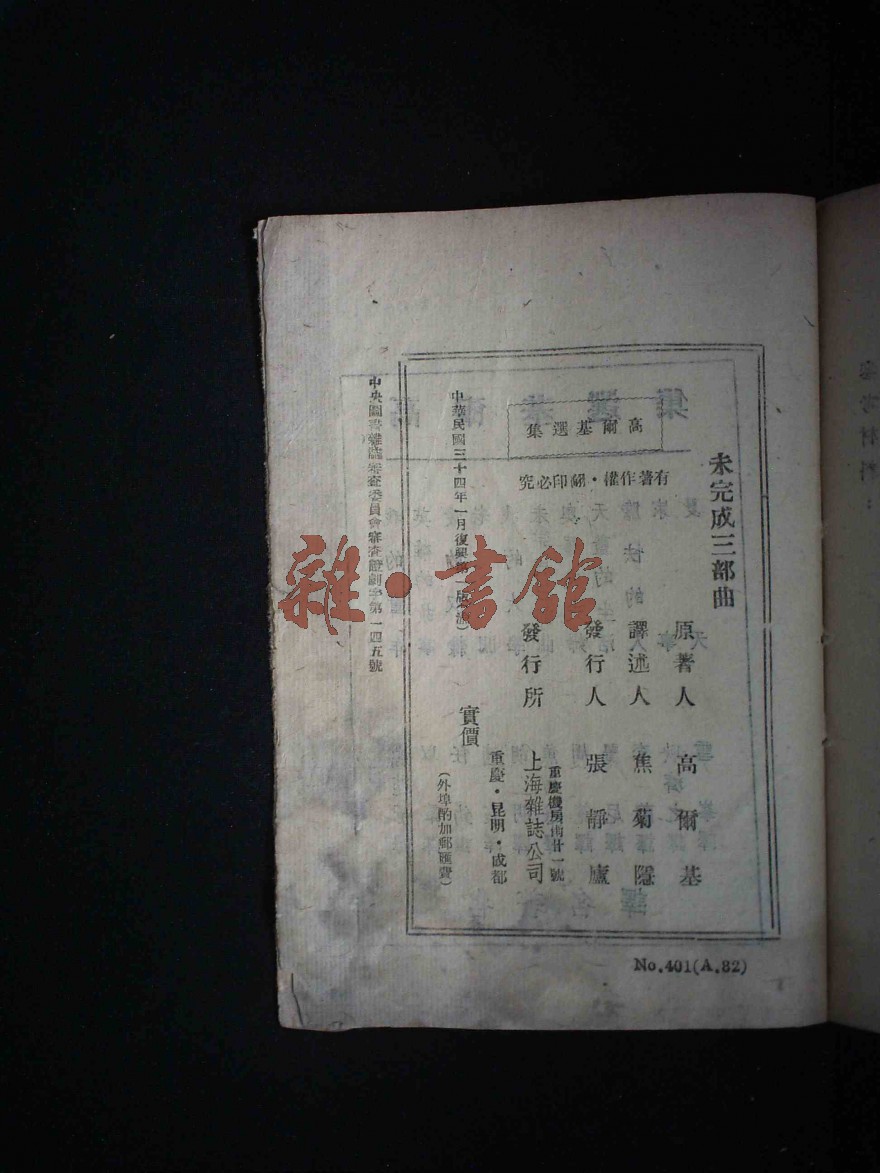 未完成三部曲
高爾基選集
有著作權·翻印必究
原著人 高爾基
譯述人 焦菊隱
發行人 張靜廬
重慶機房街廿一號
發行所 上海雜誌公司
重慶·昆明·成都
實價
(外埠酌加郵匯費)
中華民國三十四年一月復興
中央圖書雜誌審查委員會審查證劇字第一四五號
No.401(A.82)
雜·書館
參考材料: